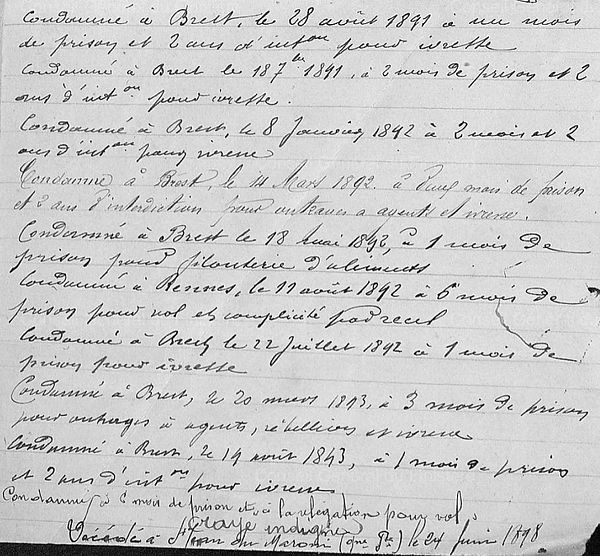 Condamné à Brest, le 28 août 1891 à un mois
de prison et 2 ans d'int.on pour ivresse
Condamné à Brest le 18 7bre 1891, à 2 mois de prison et 2
ans d'int.on pour ivresse.
Condamné à Brest, le 8 Janvier 1892 à 2 mois et 2
ans d'int.on pour ivresse
Condamné à Brest, le 14 Mars 1892 à deux mois de prison
et 2 ans d'interdiction pour outrages à agents et ivresse.
Condamné à Brest le 18 mai 1892, à 1 mois de
prison pour filouterie d'aliments
Condamné à Rennes, le 11 août 1892 à 6 mois de
prison pour vol et complicité par recel
Condamné à Brest le 22 Juillet 1892 à 1 mois de
prison pour ivresse
Condamné à Brest, le 20 mars 1893, à 3 mois de prison
pour outrages à agents, rébellion et ivresse
Condamné à Brest, le 19 août 1893, à 1 mois de prison
et 2 ans d'int.on pour ivresse
Condamné à 6 mois de prison et à la relégation pour vol.
Rayé indigne
Décédé à St Jean du Maroni (Gne Fse) le 24 Juin 1898